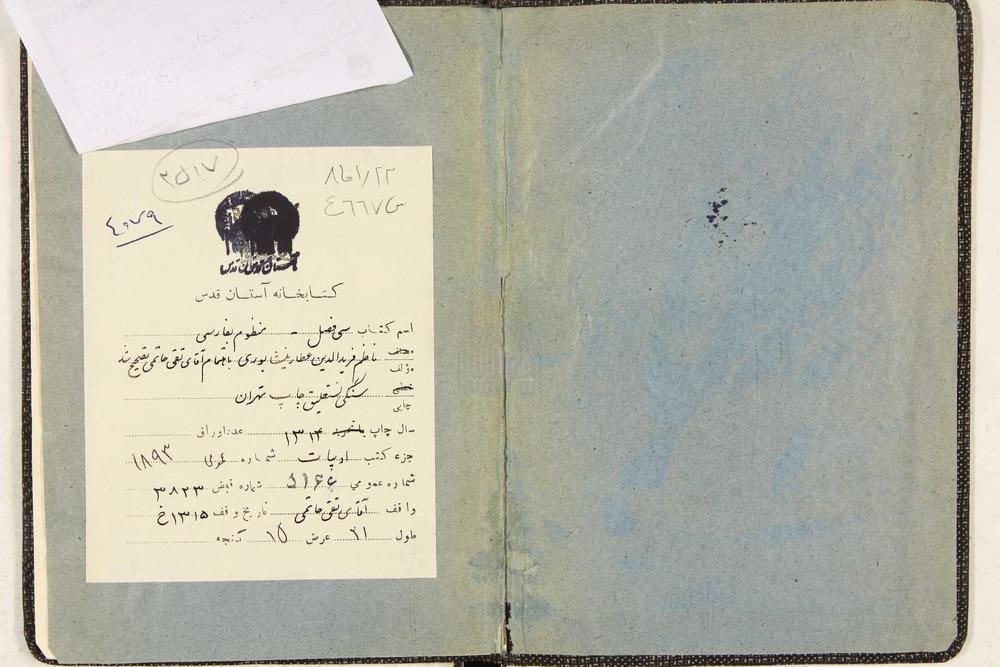 ۲۵۱۷
۸فا۱/۲۲
۴۰۷۹
کتابخانه آستان قدس
اسم کتاب سی فصل - منظوم بفارسی
مصنف مؤلف ناظم فریدالدین عطار نیشابوری باهتمام آقای تقی حاتمی تصحیح شده
خطی چاپی سنگی نستعلیق چاپ تهران
سال چاپ یا تحریر ۱۳۱۴ عدد اوراق
جزء کتب ادبیات شماره عمومی ۱۸۹۳
شماره عمومی شماره قبض ۳۸۲۳
واقف آقای تقی حاتمی تاریخ وقف ۱۳۱۵خ
طول ۲۱ عرض ۱۵ گنجه